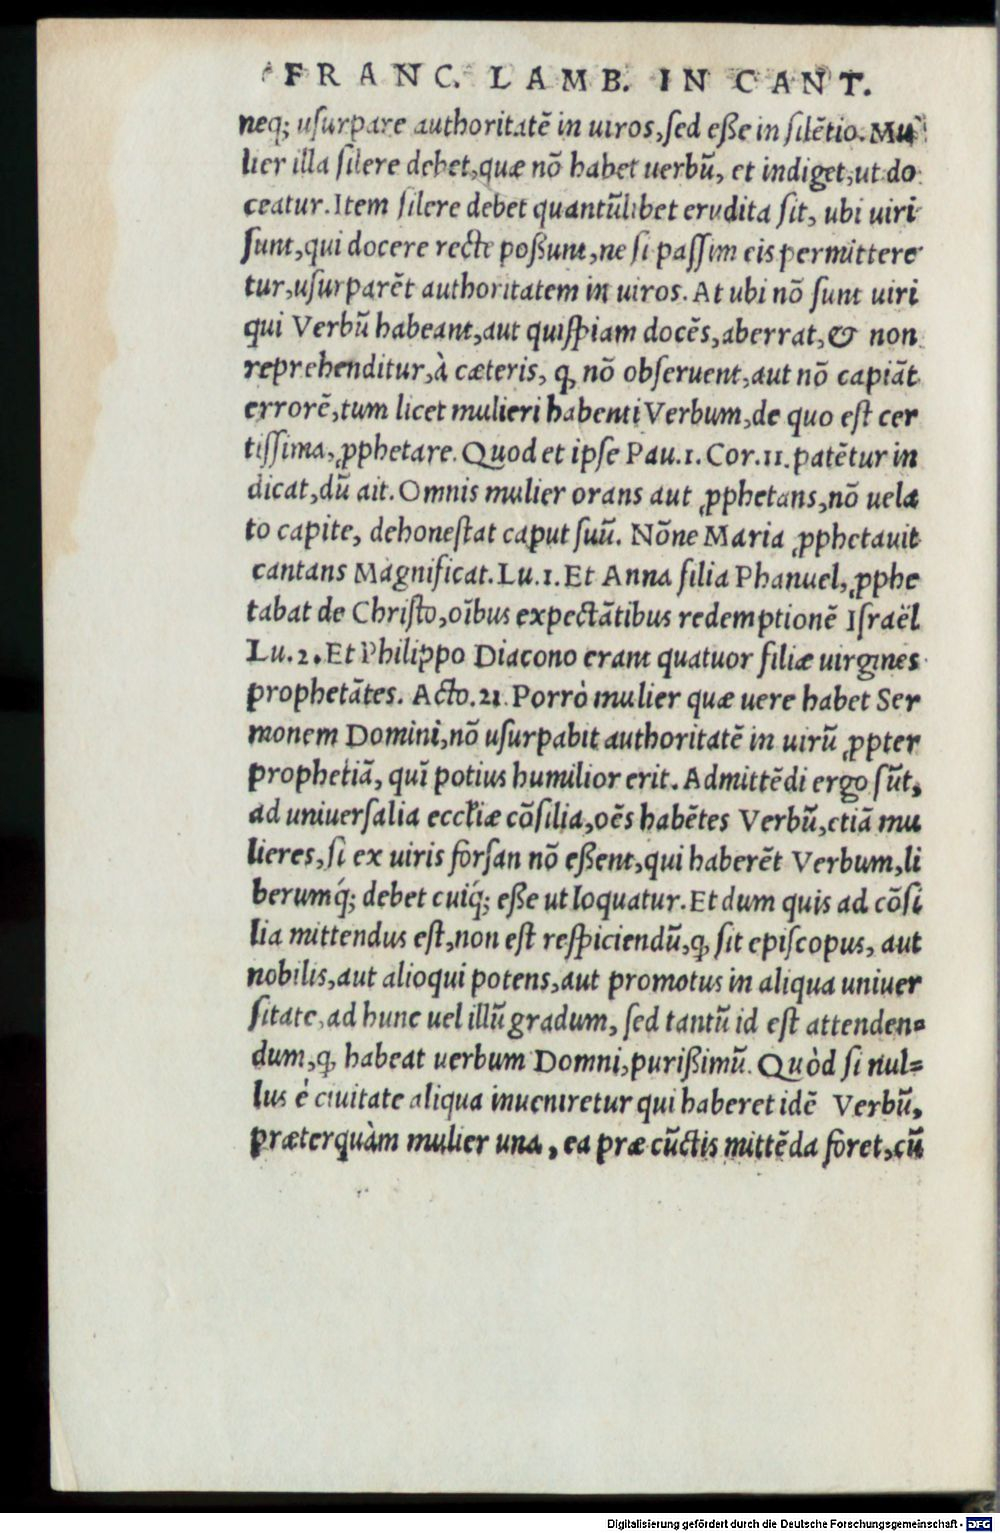 FRANC. LAMB. IN CANT.
neq; uſurpare authoritatē in uiros, ſed eße in ſilētio. Mu
lier illa ſilere debet, quæ nō habet uerbū, et indiget, ut do
ceatur. Item ſilere debet quantūlibet erudita ſit, ubi uiri
ſunt, qui docere recte poßunt, ne ſi paſſim eis permittere
tur, uſurparēt authoritatem in uiros. At ubi nō ſunt uiri
qui Verbū habeant, aut quiſpiam docēs, aberrat, & non
reprehenditur, à cæteris, ꝙ nō obſeruent, aut nō capiāt
errorē, tum licet mulieri habenti Verbum, de quo eſt cer
tiſſima, ꝓphetare. Quod et ipſe Pau. 1. Cor. 11. patētur in
dicat, dū ait. Omnis mulier orans aut ꝓphetans, nō uela
to capite, dehoneſtat caput ſuū. Nōne Maria ꝓphetauit
cantans Magnificat. Lu. 1. Et Anna filia Phanuel, ꝓphe
tabat de Chriſto, oībus expectātibus redemptionē Iſraël
Lu. 2. Et Philippo Diacono erant quatuor filiæ uirgines
prophetātes. Acto. 21. Porrò mulier quæ uere habet Ser
monem Domini, nō uſurpabit authoritatē in uirū ꝓpter
prophetiā, quī potius humilior erit. Admittēdi ergo ſūt,
ad uniuerſalia eccłiæ cōſilia, oēs habētes Verbū, etiā mu
lieres, ſi ex uiris forſan nō eßent, qui haberēt Verbum, li
berumq́; debet cuiq́; eße ut loquatur. Et dum quis ad cōſi
lia mittendus eſt, non eſt reſpiciendū, ꝙ ſit epiſcopus, aut
nobilis, aut alioqui potens, aut promotus in aliqua uniuer
ſitate, ad hunc uel illū gradum, ſed tantū id eſt attenden-
dum, ꝙ habeat uerbum Domni, purißimū. Quòd ſi nul-
lus è ciuitate aliqua inueniretur qui haberet idē Verbū,
præterquàm mulier una, ea præ cūctis mittēda foret, cū
Digitalisierung gefördert durch die Deutsche Forschungsgemeinschaft - DFG